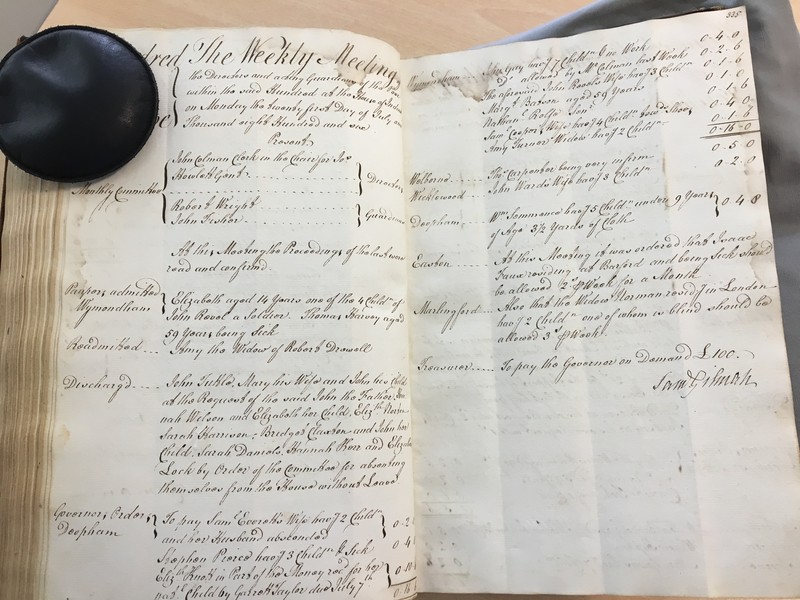 dred The Weekly Meeting
the Directors and acting Guardians of the
within the said Hundred at the House of
on Monday the twenty first Day of July one
Thousand eight Hundred and one
Present
Monthly Committee
John Colman Clerk in the Chair for
Howlett Gent
Directors
Robert Wright
John Fisher
Guardians
At this Meeting the Proceedings of the last were
read and confirmed
Paupers admitted
Wymondham
Elizabeth aged 14 Years one of the 4 Child.n of
John Rovel a Soldier. Thomas Harvey aged
59 Years being Sick
Readmitted
Amy the Widow of Robert
Discharg'd
John Tickle, Mary his Wife and John his Child
at the Request of the said John the Father,
nah Welson and Elizabeth her Child, Eliz.th
Sarah Harrison, Bridget Claxton and John her
Child, Sarah Daniels, Hannah and Eliza
Lock by Order of the Committee for absenting
themselves from the House without Leave
Governors Orders
Deopham
To pay Sam.l Everett's Wife hav.g 2 Child.n
and her Husband absconded
0-2
Stephen Pierce hav.g 3 Child.n & Sick
0-4
Eliz.th Knott in Part of the Money rec.d for her
nat.l Child by Garrett Taylor due July 7th
0-10
0-16
335
Wymondham
John Gay hav.g 7 Child.n One Week
0-4-0
D.o allowed by Mr Colman last Week
0-2-6
The aforesaid John Rovel's Wife hav.g 3 Child.n
0-1-6
Mary Barton aged 59 Years
0-1-0
Nathan Rolfe Sen.r
0-1-6
Sam.l Cooper's Wife hav.g 4 Child.n tow.ds Shoes
0-4-0
Amy Turner Widow hav.g 2 Child.n
0-1-6
0-16-0
Welborne
Tho.s Carpenter being very infirm
0-5-0
Wicklewood
John Ward's Wife hav.g 3 Child.n
0-2-0
Deopham
Wm hav.g 5 Child.n under 9 Years
of Age 3½ Yards of Cloth
0-4-8
Easton
At this Meeting it was ordered that Isaac
Faux residing at Barford and being Sick should
be allowed 2s p Week for a Month
Marlingford
Also that the Widow Norman resid.g in London
hav.g 2 Child.n one of whom is blind should be
allowed 3s p Week
Treasurer
To pay the Governor on Demand £100.
Sam.l Gilman